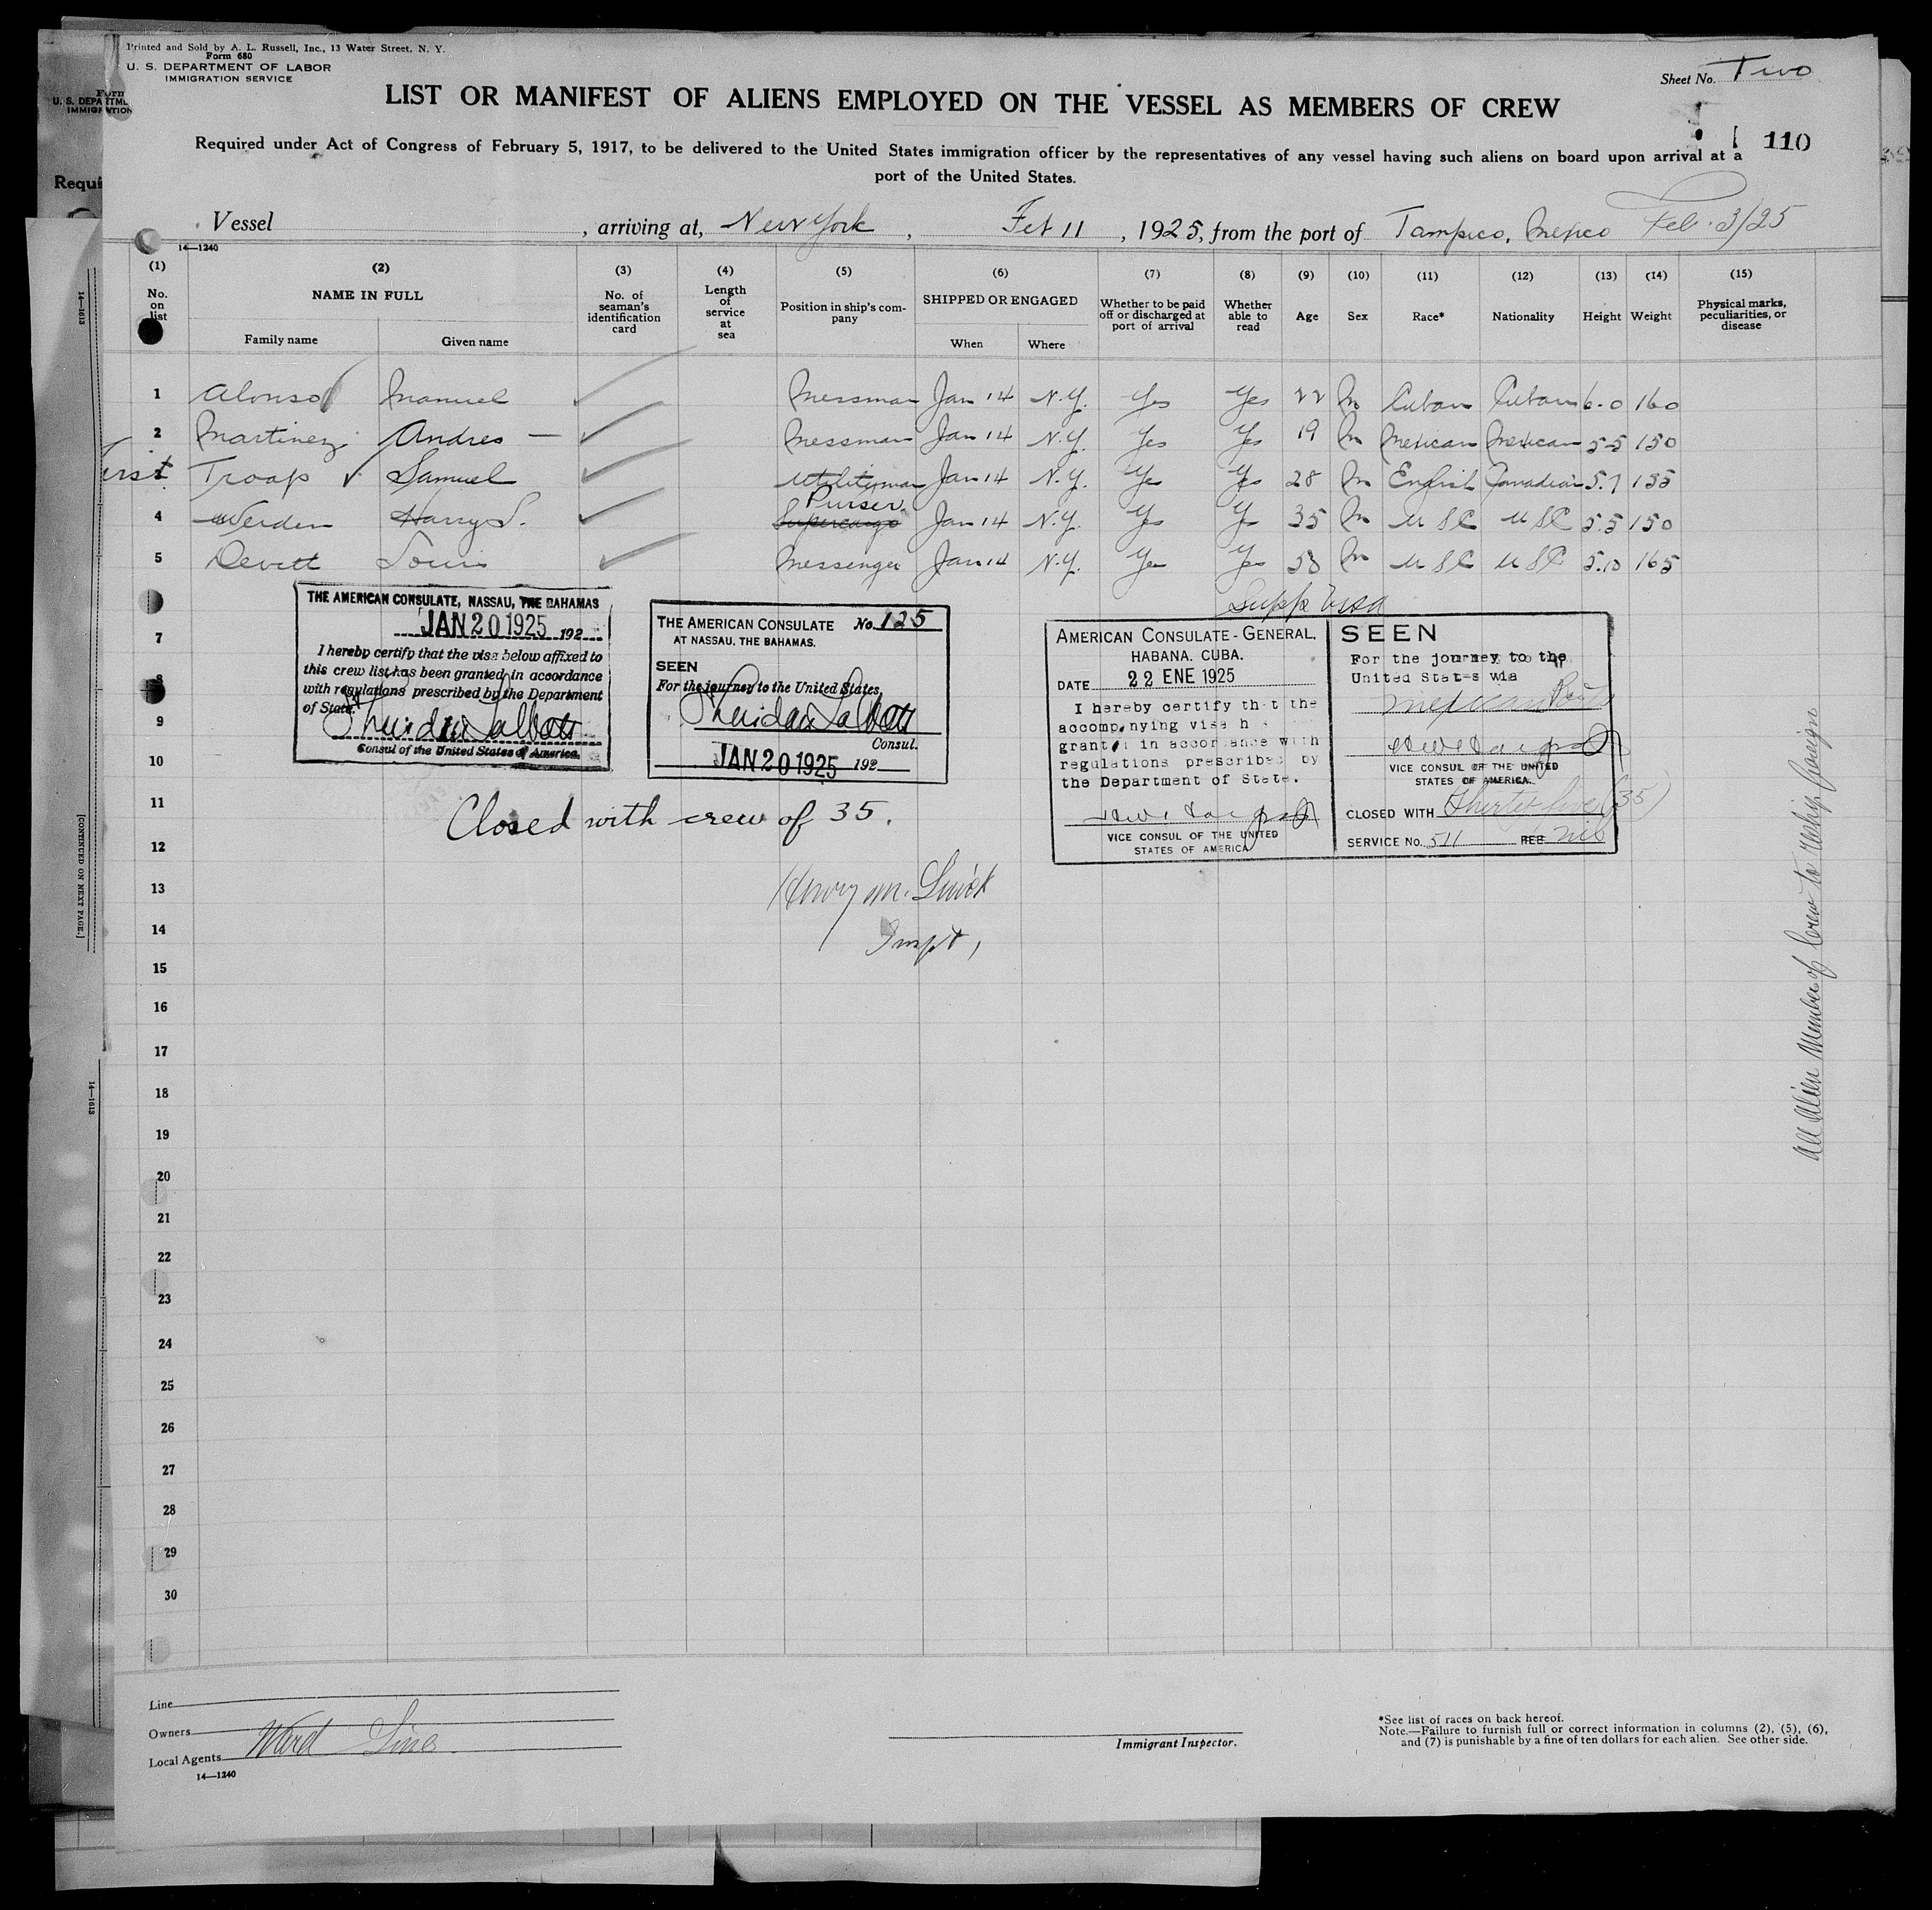 Printed and Sold by A. L. Russell, Inc., 13 Water Street, N. Y.
Form 680
U. S. DEPARTMENT OF LABOR
IMMIGRATION SERVICE
Sheet No. Two
LIST OR MANIFEST OF ALIENS EMPLOYED ON THE VESSEL AS MEMBERS OF CREW
110
Required under Act of Congress of February 5, 1917, to be delivered to the United States immigration officer by the representatives of any vessel having such aliens on board upon arrival at a
port of the United States.
Vessel , arriving at, New York , Feb 11 , 1925, from the port of Tampico, Mexico Feb. 3/25
14—1240
(1) (2) (3) (4) (5) (6) (7) (8) (9) (10) (11) (12) (13) (14) (15)
No. on list NAME IN FULL No. of seaman's identification card Length of service at sea Position in ship's company SHIPPED OR ENGAGED Whether to be paid off or discharged at port of arrival Whether able to read Age Sex Race* Nationality Height Weight Physical marks, peculiarities, or disease
Family name Given name When Where
1 Alonso Manuel Messman Jan 14 N.Y. Yes Yes 22 M Cuban Cuban 6-0 160
2 Martinez Andres — Messman Jan 14 N.Y. Yes Yes 19 M Mexican Mexican 5-5 150
Troop Samuel Utilityman Jan 14 N.Y. Yes Yes 28 M English Canadian 5.7 155
Purser
4 Werden Harry S. Supercargo Jan 14 N.Y. Yes Yes 35 M USC USC 5.5 150
5 Devitt Louis Messenger Jan 14 N.Y. Yes Yes 58 M USC USC 5.10 165
Supp Visa
THE AMERICAN CONSULATE, NASSAU, THE BAHAMAS
JAN 20 1925 192
I hereby certify that the visa below affixed to
this crew list has been granted in accordance
with regulations prescribed by the Department
of State.
Sheridan Talbott
Consul of the United States of America.
THE AMERICAN CONSULATE No. 125
AT NASSAU, THE BAHAMAS.
SEEN
For the journey to the United States,
Sheridan Talbott
Consul.
JAN 20 1925 192
AMERICAN CONSULATE-GENERAL,
HABANA, CUBA.
DATE 22 ENE 1925
I hereby certify that the
accompanying vise h
granted in accordance with
regulations prescribed by
the Department of State.
VICE CONSUL OF THE UNITED
STATES OF AMERICA
SEEN
For the journey to the
United States via
Mexican Ports
VICE CONSUL OF THE UNITED
STATES OF AMERICA.
CLOSED WITH Thirty five (35)
SERVICE No. 511 FEE nil
7
8
9
10
11
12
13
14
15
16
17
18
19
20
21
22
23
24
25
26
27
28
29
30
Closed with crew of 35.
Inspt,
All Alien Member of Crew to Reship Foreign
Line
Owners
Local Agents Ward Line
14—1240
Immigrant Inspector.
*See list of races on back hereof.
Note.—Failure to furnish full or correct information in columns (2), (5), (6),
and (7) is punishable by a fine of ten dollars for each alien. See other side.
Form
U. S. DEPARTME
IMMIGRATION
Requi
14—1613
[CONTINUED ON NEXT PAGE.]
14—1613